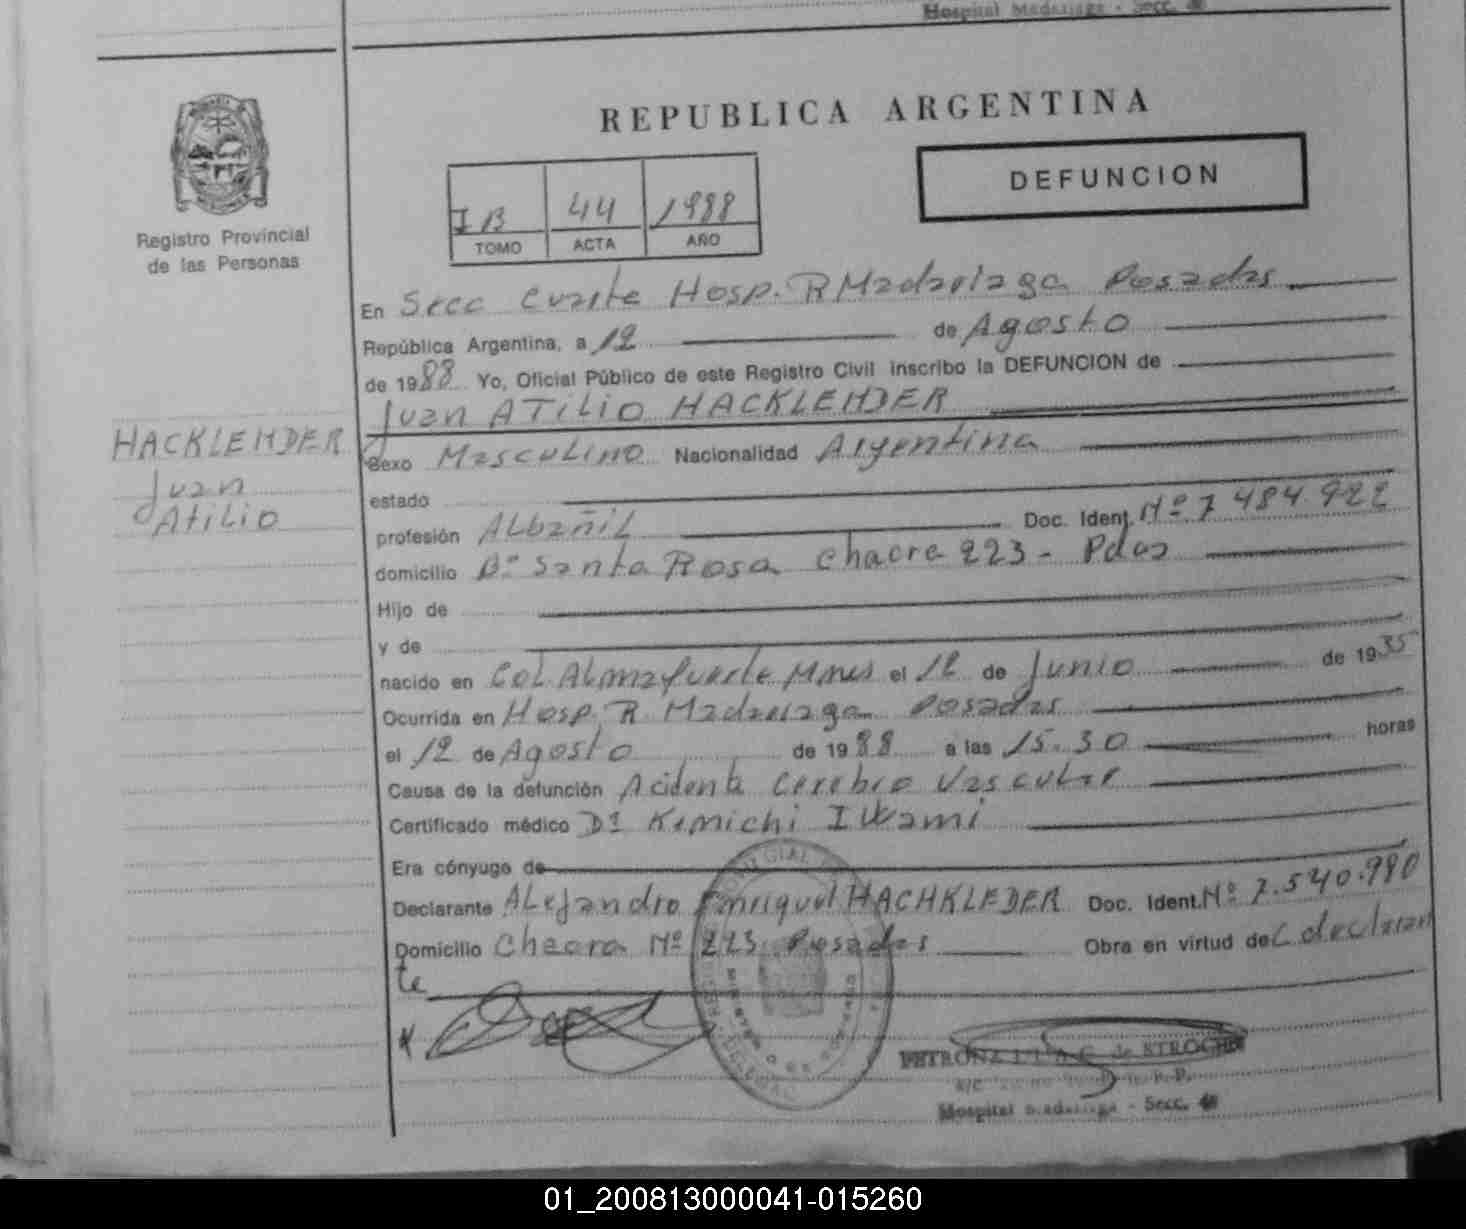 Hospital Madariaga - Secc. 4ª
REPUBLICA ARGENTINA
DEFUNCION
Registro Provincial
de las Personas
I B 44 1988
TOMO ACTA AÑO
En Secc Cuarta Hosp. R Madariaga Posadas
República Argentina, a 12 de Agosto
de 1988 Yo, Oficial Público de este Registro Civil inscribo la DEFUNCION de
Juan ATiLiO HACKLENDER
HACKLENDER
Juan
Atilio
Sexo Masculino Nacionalidad Argentina
estado
profesión ALbañiL Doc. Ident. Nº 7 484.922
domicilio Bº Santa Rosa Chacra 223 - Pdas
Hijo de
y de
nacido en Col. Almafuerte Mnes el 12 de Junio de 1935
Ocurrida en Hosp. R. Madariaga Posadas
el 12 de Agosto de 1988 a las 15.30 horas
Causa de la defunción Acidente Cerebro Vascular
Certificado médico Dr Kemichi Iwami
Era cónyuge de
Declarante ALejandro Enrique HACHKLEDER Doc. Ident. Nº 7.540.980
Domicilio Chacra Nº 223 Posadas Obra en virtud de L declaran
te
PETRONA de STROCHI
Hospital Madariaga - Secc. 4ª
01_200813000041-015260